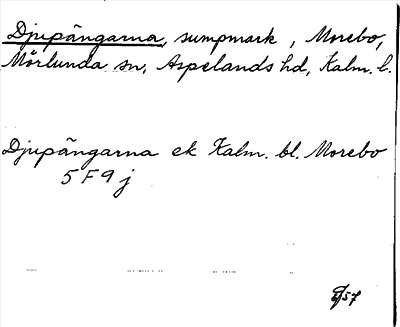 Djupängarna, sumpmark, Morebo,
Mörlunda sn, Aspelands hd, Kalm. l.
Djupängarna ek Kalm. bl. Morebo
5 F 9 j
57